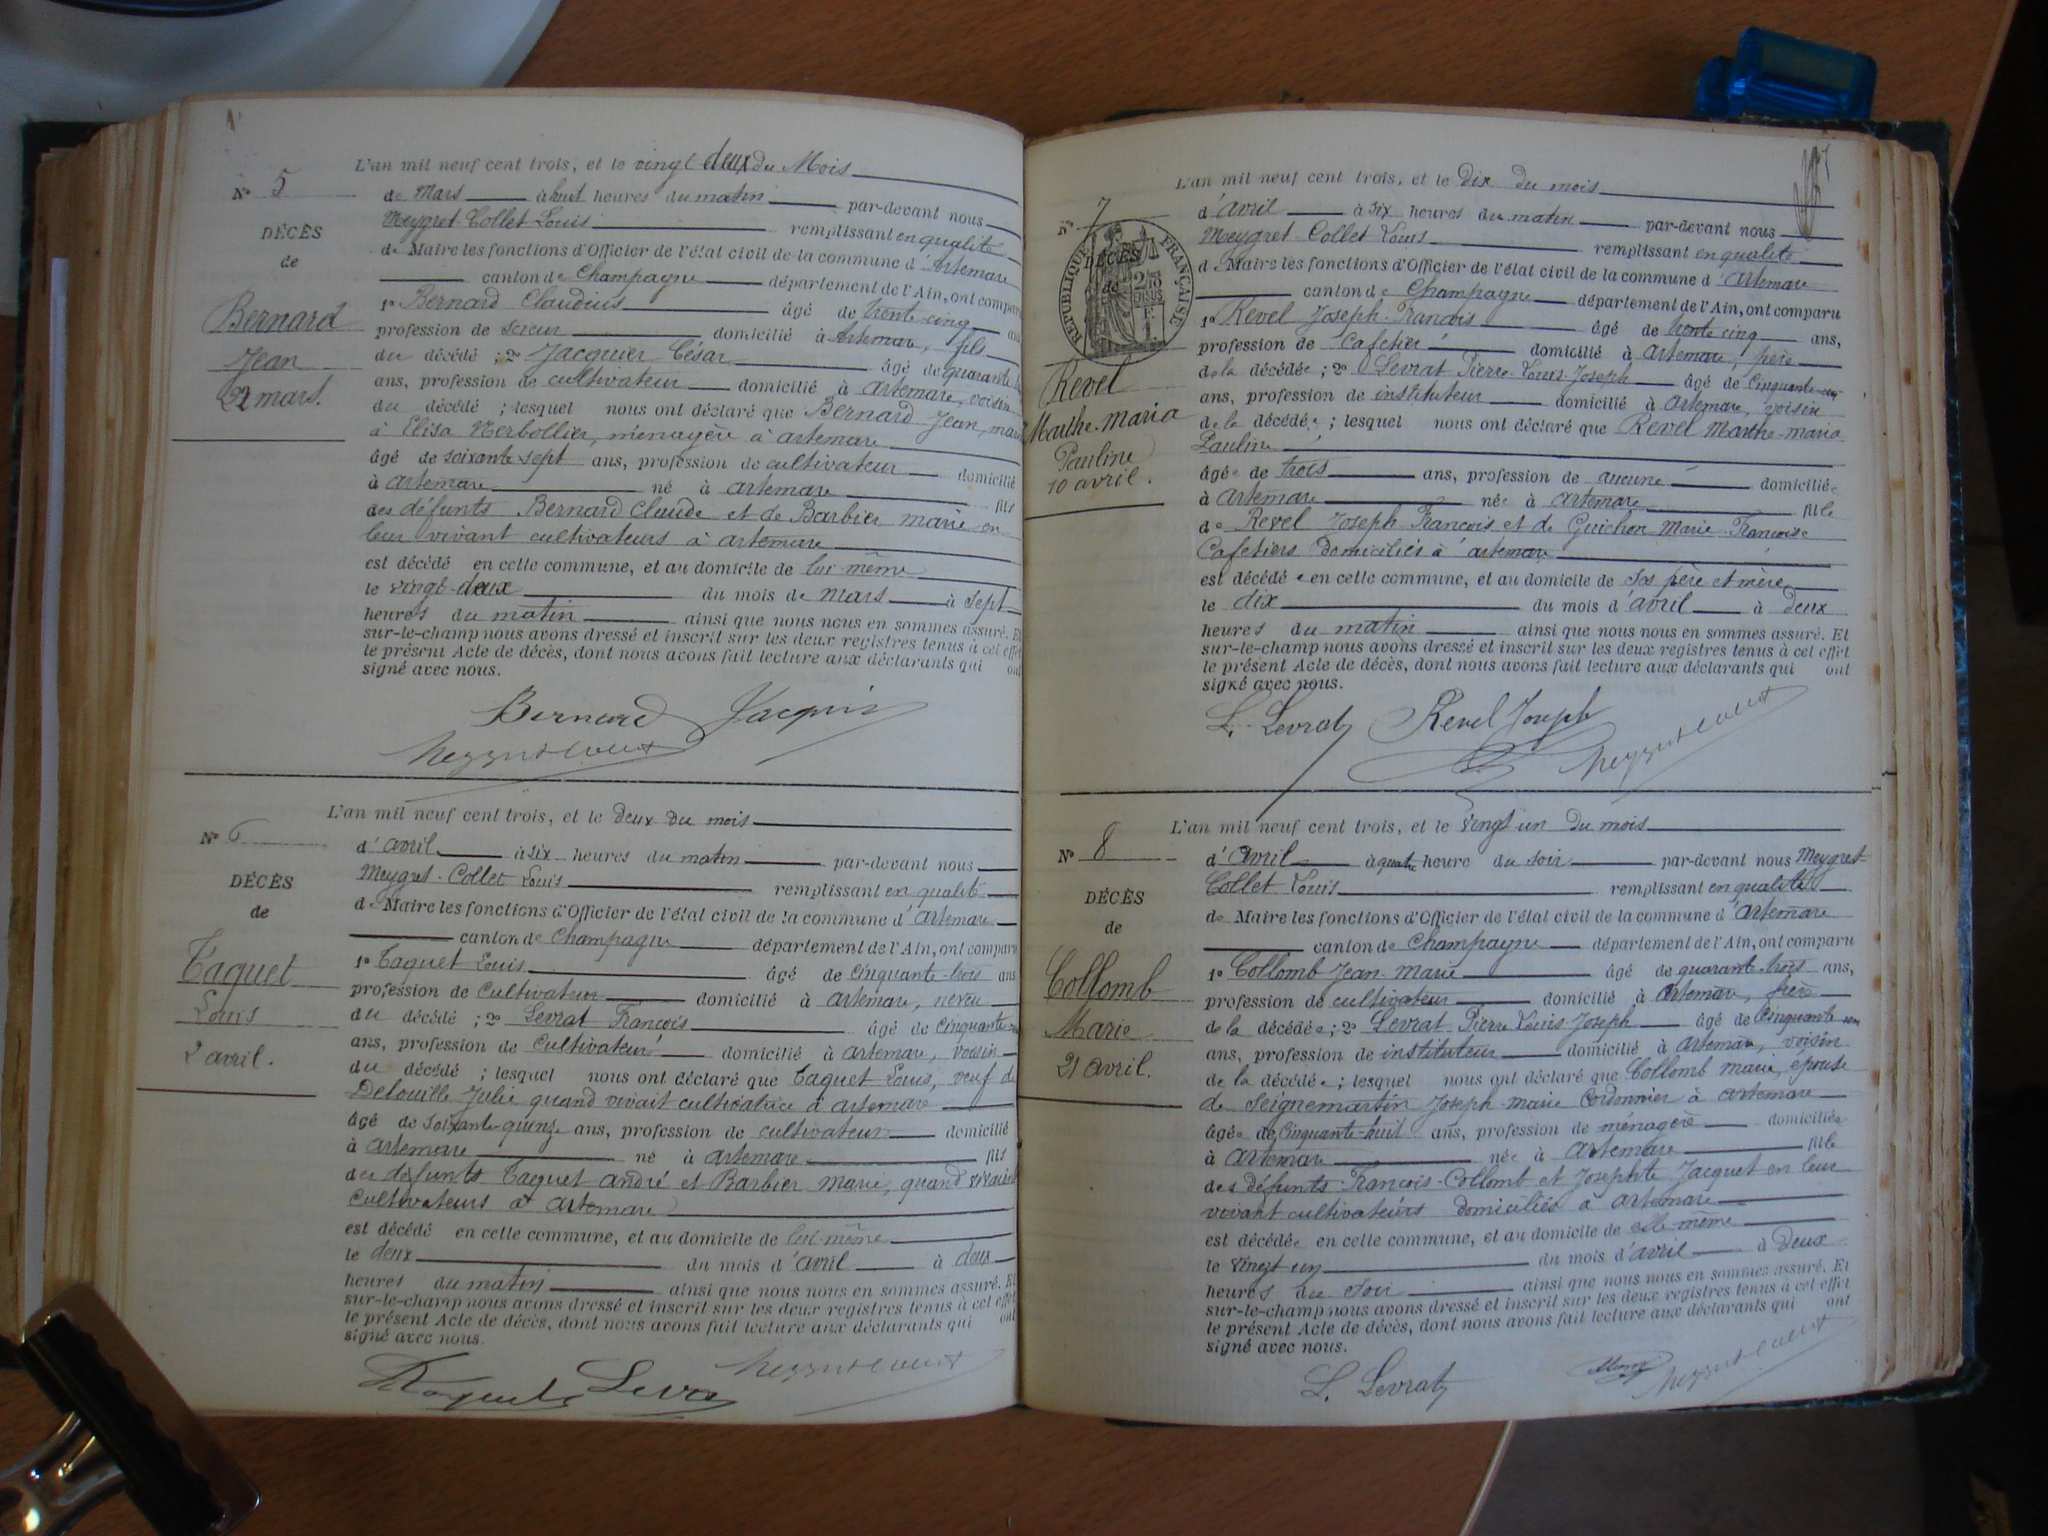 L'an mil neuf cent trois, et le vingt deux du Mois
N° 5
de Mars à huit heures du matin par-devant nous
Meygret-Collet Louis remplissant en qualité
DÉCÈS
de Maire les fonctions d'Officier de l'état civil de la commune d'Artemare
de
canton de Champagne département de l'Ain, ont comparu
Bernard
1° Bernard Claudius âgé de trente-cinq ans
profession de scieur domicilié à Artemare, fils
Jean
du décédé ; 2° Jacquier César âgé de quarante
22 mars.
ans, profession de cultivateur domicilié à Artemare, voisin
du décédé ; lesquel nous ont déclaré que Bernard Jean, mari
à Elisa Nerbollier, ménagère à artemare
âgé de soixante sept ans, profession de cultivateur domicilié
à artemare né à artemare fils
des défunts Bernard Claude et de Barbier marie en
leur vivant cultivateurs à artemare
est décédé en cette commune, et au domicile de lui-même
le vingt-deux du mois de mars à sept
heures du matin ainsi que nous nous en sommes assuré. Et
sur-le-champ nous avons dressé et inscrit sur les deux registres tenus à cet effet
le présent Acte de décès, dont nous avons fait lecture aux déclarants qui ont
signé avec nous.
Bernard Jacquier
L'an mil neuf cent trois, et le deux du mois
N° 6
d'avril à six heures du matin par-devant nous
Meygret-Collet Louis remplissant en qualité
DÉCÈS
de Maire les fonctions d'Officier de l'état civil de la commune d'artemare
de
canton de Champagne département de l'Ain, ont comparu
Taquet
1° Taquet Louis âgé de cinquante-trois ans
profession de Cultivateur domicilié à artemare, neveu
Louis
du décédé ; 2° Levrat François âgé de cinquante
2 avril.
ans, profession de Cultivateur domicilié à artemare, voisin
du décédé ; lesquel nous ont déclaré que Taquet Louis, veuf de
Delouille Julie quand vivait cultivatrice à artemare
âgé de soixante-quinze ans, profession de cultivateur domicilié
à artemare né à artemare fils
des défunts Taquet andré et Barbier marie, quand vivaient
cultivateurs à Artemare
est décédé en cette commune, et au domicile de lui-même
le deux du mois d'avril à deux
heures du matin ainsi que nous nous en sommes assuré. Et
sur-le-champ nous avons dressé et inscrit sur les deux registres tenus à cet effet
le présent Acte de décès, dont nous avons fait lecture aux déclarants qui ont
signé avec nous.
Taquet Levrat
L'an mil neuf cent trois, et le dix du mois
N° 7
d'avril à six heures du matin par-devant nous
Meygret-Collet Louis remplissant en qualité
DÉCÈS
de Maire les fonctions d'Officier de l'état civil de la commune d'Artemare
de
RÉPUBLIQUE FRANÇAISE
canton de Champagne département de l'Ain, ont comparu
1° Revel Joseph-François âgé de trente cinq ans,
profession de Cafetier domicilié à artemare, père
Revel
de la décédée ; 2° Levrat Pierre-Louis-Joseph âgé de cinquante-un
ans, profession de instituteur domicilié à artemare, voisin
Marthe-Maria
de la décédée ; lesquel nous ont déclaré que Revel Marthe-Maria
Pauline
Pauline
10 avril.
âgée de trois ans, profession de aucune domiciliée
à artemare née à artemare fille
de Revel Joseph-François et de Guichon Marie-Françoise
Cafetiers domiciliés à artemare
est décédée en cette commune, et au domicile de ses père et mère
le dix du mois d'avril à deux
heures du matin ainsi que nous nous en sommes assuré. Et
sur-le-champ nous avons dressé et inscrit sur les deux registres tenus à cet effet
le présent Acte de décès, dont nous avons fait lecture aux déclarants qui ont
signé avec nous.
L. Levrat Revel Joseph
L'an mil neuf cent trois, et le vingt un du mois
N° 8
d'avril à quatre heure du soir par-devant nous Meygret-
Collet Louis remplissant en qualité
DÉCÈS
de Maire les fonctions d'Officier de l'état civil de la commune d'artemare
de
canton de Champagne département de l'Ain, ont comparu
Collomb
1° Collomb Jean-Marie âgé de quarante-trois ans,
profession de cultivateur domicilié à artemare, frère
Marie
de la décédée ; 2° Levrat Pierre Louis Joseph âgé de cinquante-un
21 avril.
ans, profession de instituteur domicilié à artemare, voisin
de la décédée ; lesquel nous ont déclaré que Collomb marie, épouse
de Seignemartin Joseph marie Cordonnier à artemare
âgée de cinquante-huit ans, profession de ménagère domiciliée
à artemare née à Artemare fille
des défunts François-Collomb et Josephte Jacquet en leur
vivant cultivateurs domiciliés à artemare
est décédée en cette commune, et au domicile de elle-même
le vingt un du mois d'avril à deux
heures du soir ainsi que nous nous en sommes assuré. Et
sur-le-champ nous avons dressé et inscrit sur les deux registres tenus à cet effet
le présent Acte de décès, dont nous avons fait lecture aux déclarants qui ont
signé avec nous.
L. Levrat